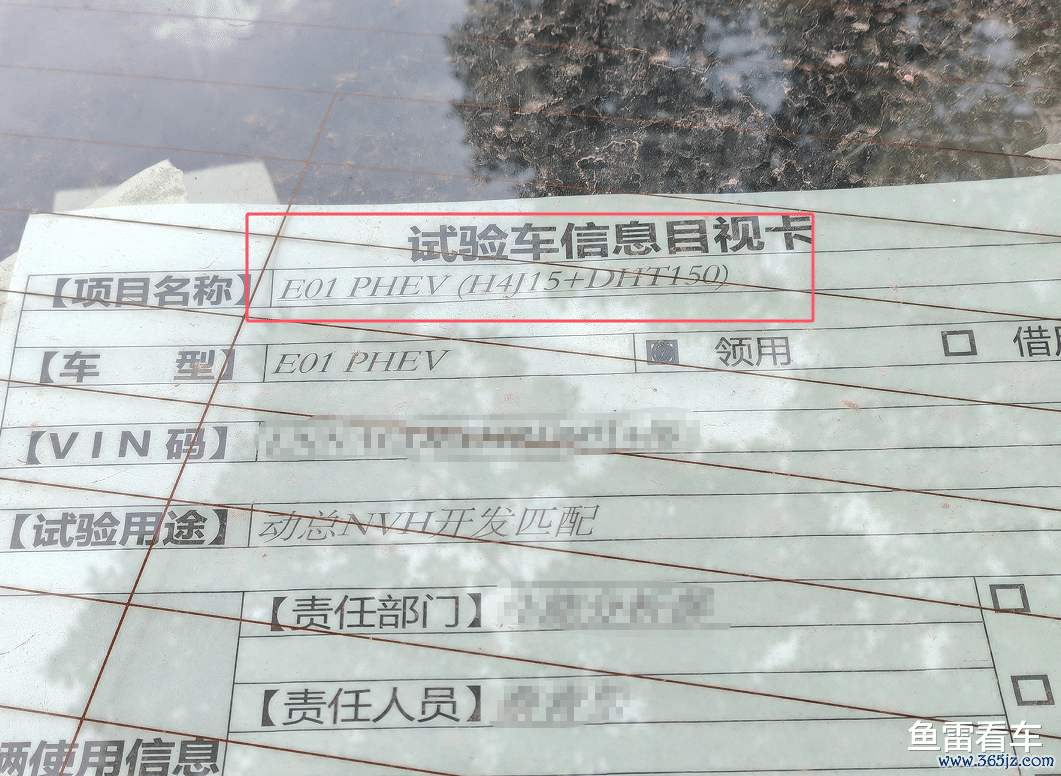 试验车信息目视卡
【项目名称】 E01 PHEV (H4J15+DHT150)
【车 型】 E01 PHEV 领用
【VIN码】
【试验用途】 动总NVH开发匹配
【责任部门】
【责任人员】
使用信息
鱼雷看车
www.365jz.com